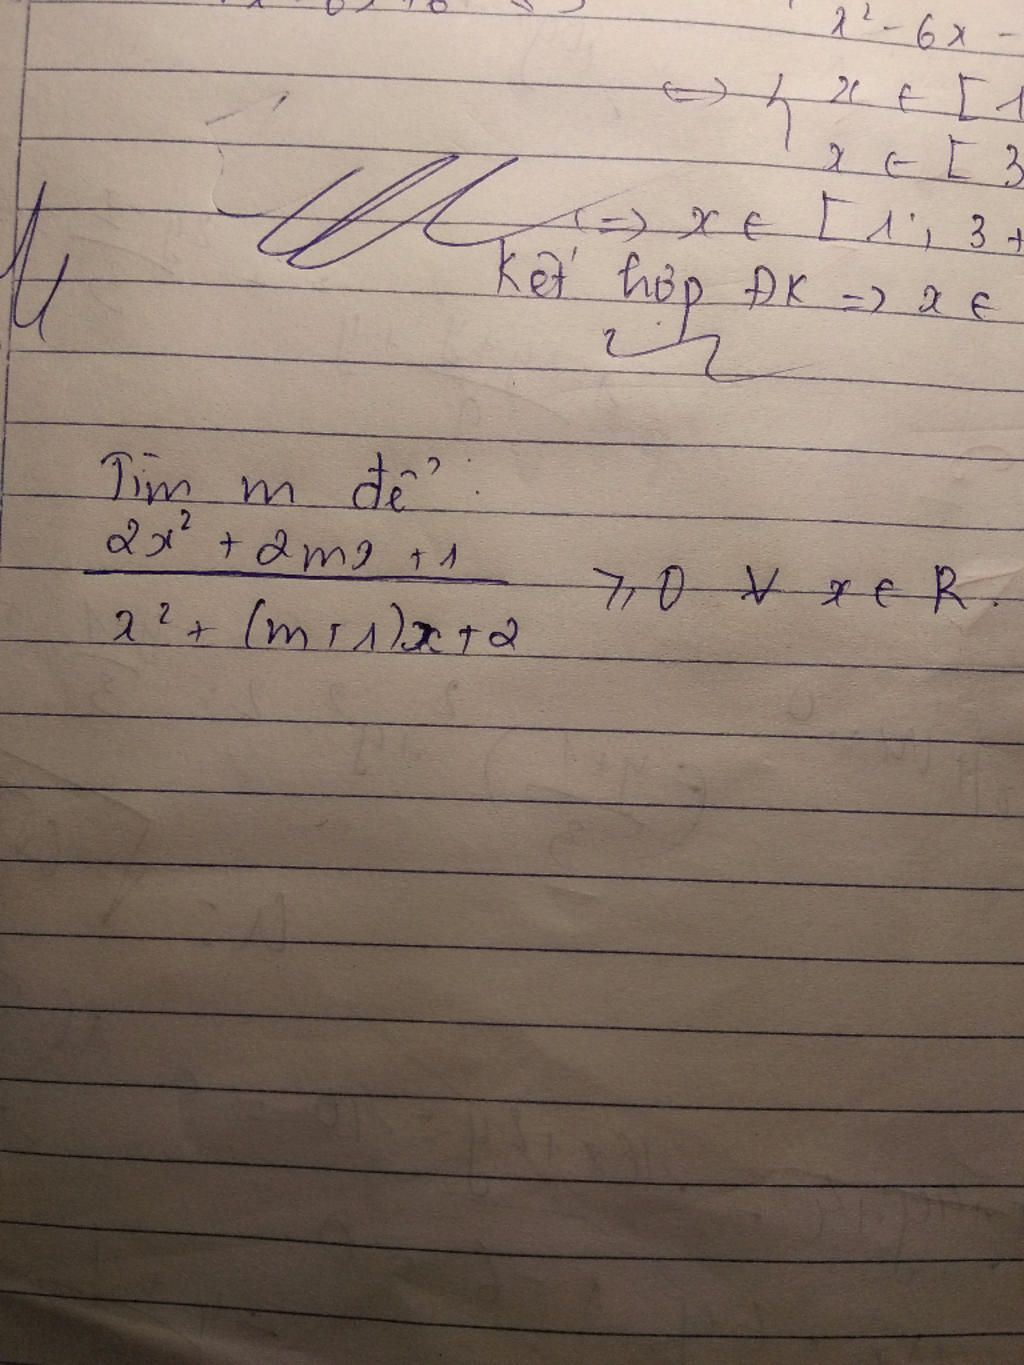 x² - 6x -
<=> { x ∈ [1
x ∈ [3
<=> x ∈ [1; 3+
Kết hợp ĐK => x ∈
Tìm m để:
2x² + 2mx + 1
x² + (m+1)x + 2
≥ 0 ∀ x ∈ R.